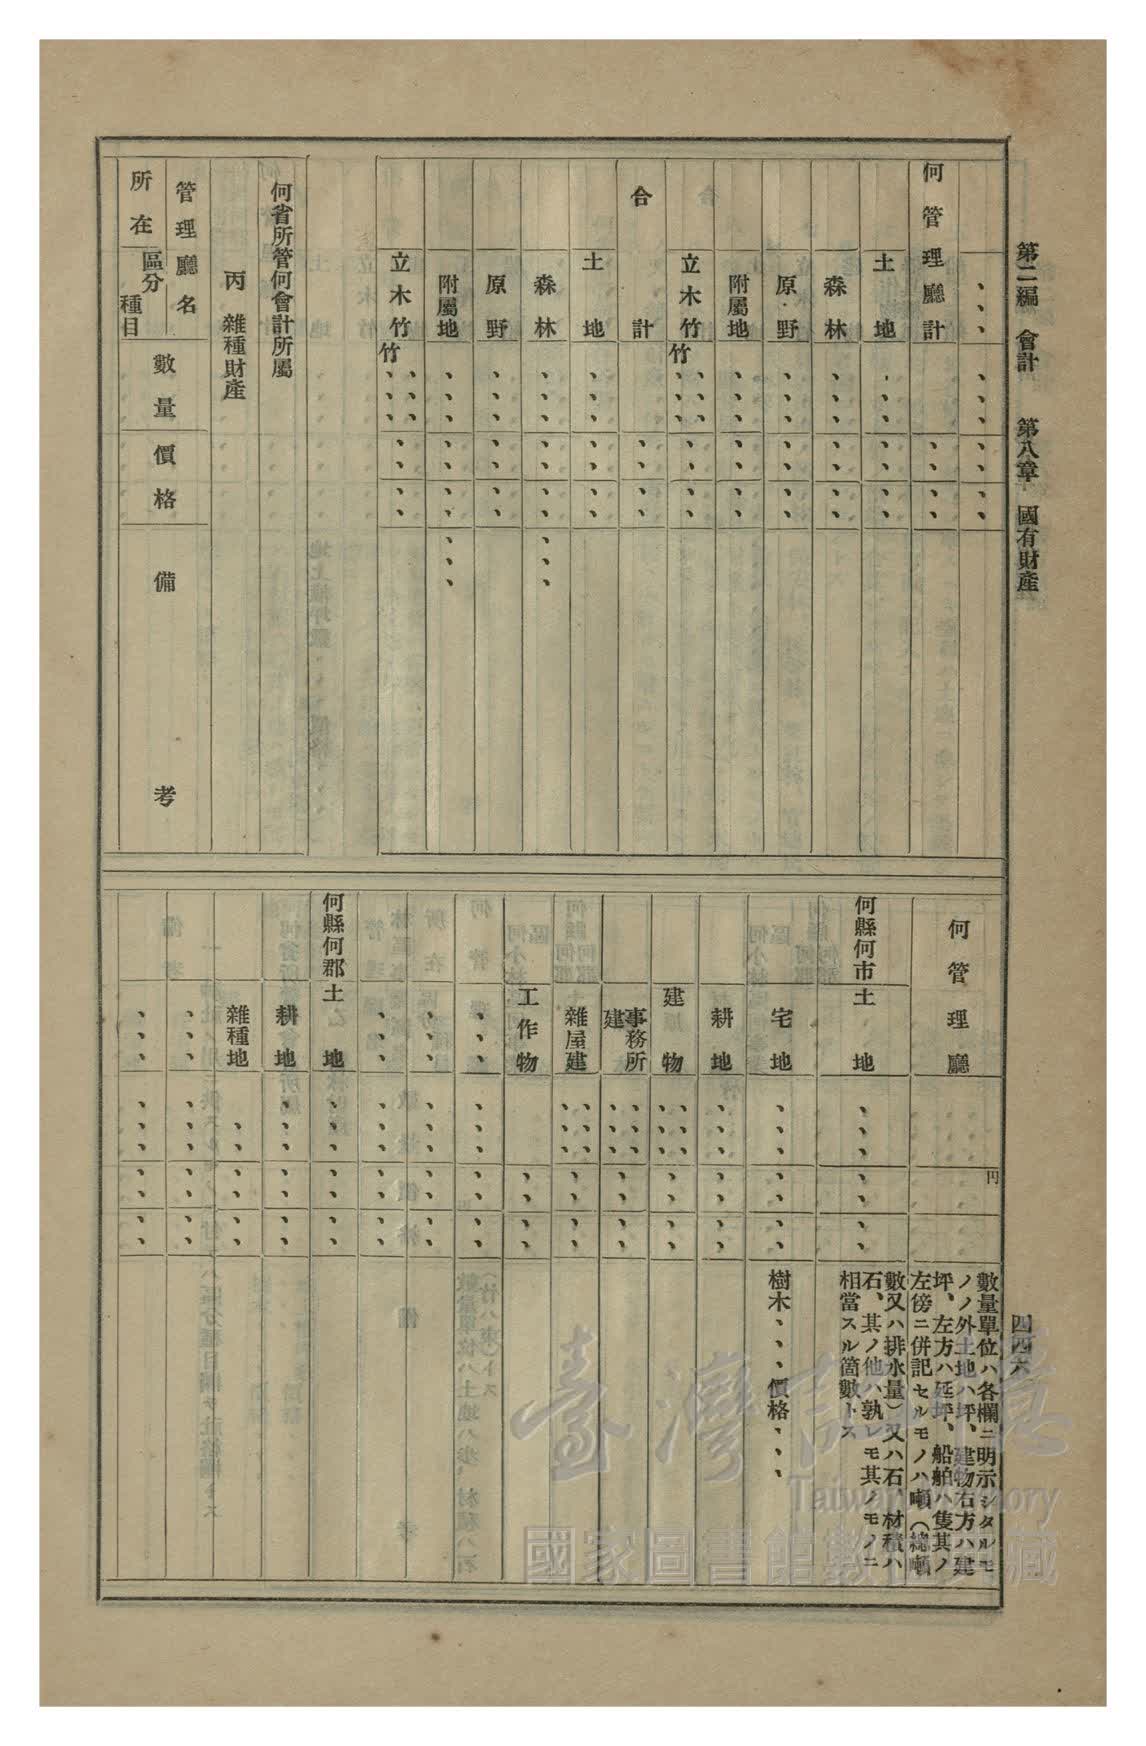 第二編　會計　　第八章　國有財產
四四六
、、、　、、、　、、
何管理廳計　、、　、、
土地　、、、　、、　、、
森林　、、、　、、　、、
原野　、、、　、、　、、
附屬地　、、、　、、　、、
立木竹　竹、、、　、、　、、
合計　、、　、、
土地　、、、　、、　、、
森林　、、、　、、　、、　、、、
原野　、、、　、、　、、
附屬地　、、、　、、　、、　、、、
立木竹　竹、、、　、、　、、
何省所管何會計所屬
丙　雜種財產
管理廳名
所在
區分
種目
數量
價格
備考
何管理廳
円
數量單位ハ各欄ニ明示シタルモ
ノノ外土地ハ坪、建物右方ハ建
坪、左方ハ延坪、船舶ハ隻其ノ
左傍ニ併記セルモノハ噸（總噸
數又ハ排水量）又ハ石、材積ハ
石、其ノ他ハ孰レモ其ノモノニ
相當スル箇數トス
何縣何市　土地　、、、　、、　、、
宅地　、、、　、、　、、　樹木、、、價格、、、
耕地　、、、　、、　、、
建物　、、、　、、　、、
事務所
建　、、、　、、　、、
雜屋建　、、、　、、　、、
工作物　、、　、、
、、、　、、、　、、　、、
、、、　、、　、、
、、、　、、、　、、　、、
何縣何郡　土地　、、、　、、　、、
耕地　、、、　、、　、、
雜種地　、、　、、　、、
、、、　、、、　、、　、、
、、、　、、、　、、　、、
臺灣記憶
Taiwan Memory
國家圖書館數位典藏